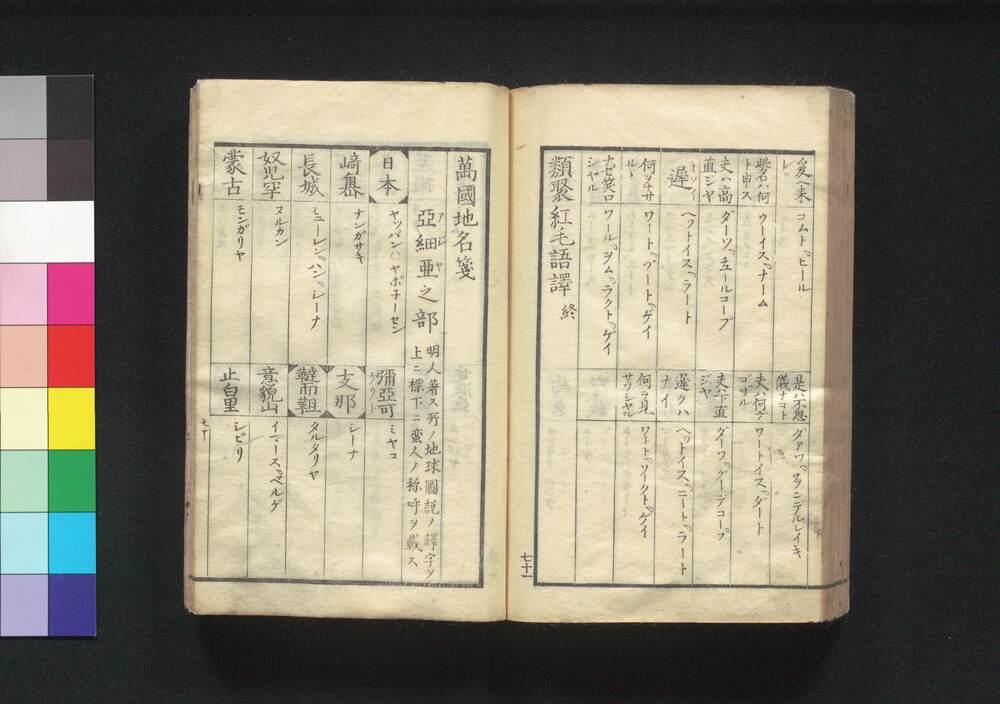 爰ヘ来レ コムト、ヒール
是ハ不思儀ナコト ダァワ、ワンデルレイキ
磐石ハ何ト申ス ウーイス、ナーム
夫ハ何デゴザル ワートイス、ダート
夫ハ高直ジヤ ダーソ、チュールコープ
夫ハ下直ジヤ ダーワ、グーデコープ
遅 ヘットイス、ラート
遅クハナイ ヘットイス、ニート、ラート
何ヲナサル ワート、ドート、ゲイ
何ヲ見サツシヤル ワト、ソイクト、ゲイ
ナゼ笑ロシヤル ワール、ヲム、ラクト、ゲイ
類聚紅毛語譯 終
七十一
萬國地名箋
亞細亜之部 アジヤ
明人著ス所ノ地球圖説ノ譯字ヲ
上ニ標下ニ蛮人ノ称呼ヲ載ス
日本 ヤッパン○ヤポチーセン
彌亞可 ミヤコ
﨑嶴 ナンガサキ
支那 シーナ
長城 ミューレン、ハン、シーナ
韃而靼 タルタリヤ
奴児罕 ヌルカン
意貌山 イマース、ベルゲ
蒙古 モンガリヤ
止白里 シビリ
七十